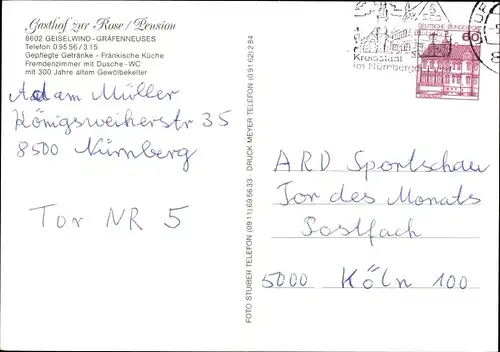 Gasthof zur Rose / Pension
8602 GEISELWIND - GRÄFENNEUSES
Telefon 0 95 56 / 3 15
Gepflegte Getränke - Fränkische Küche
Fremdenzimmer mit Dusche - WC
mit 300 Jahre altem Gewölbekeller
Adam Müller
Königsweiherstr 35
8500 Nürnberg
Tor NR 5
FOTO STUIBER TELEFON (09 11) 69 56 33 DRUCK MEYER TELEFON (0 91 62) 2 84
Kreisstadt
im Nürnberger
DEUTSCHE BUNDESPOST
60
ARD Sportschau
Tor des Monats
Postfach
5000 Köln 100